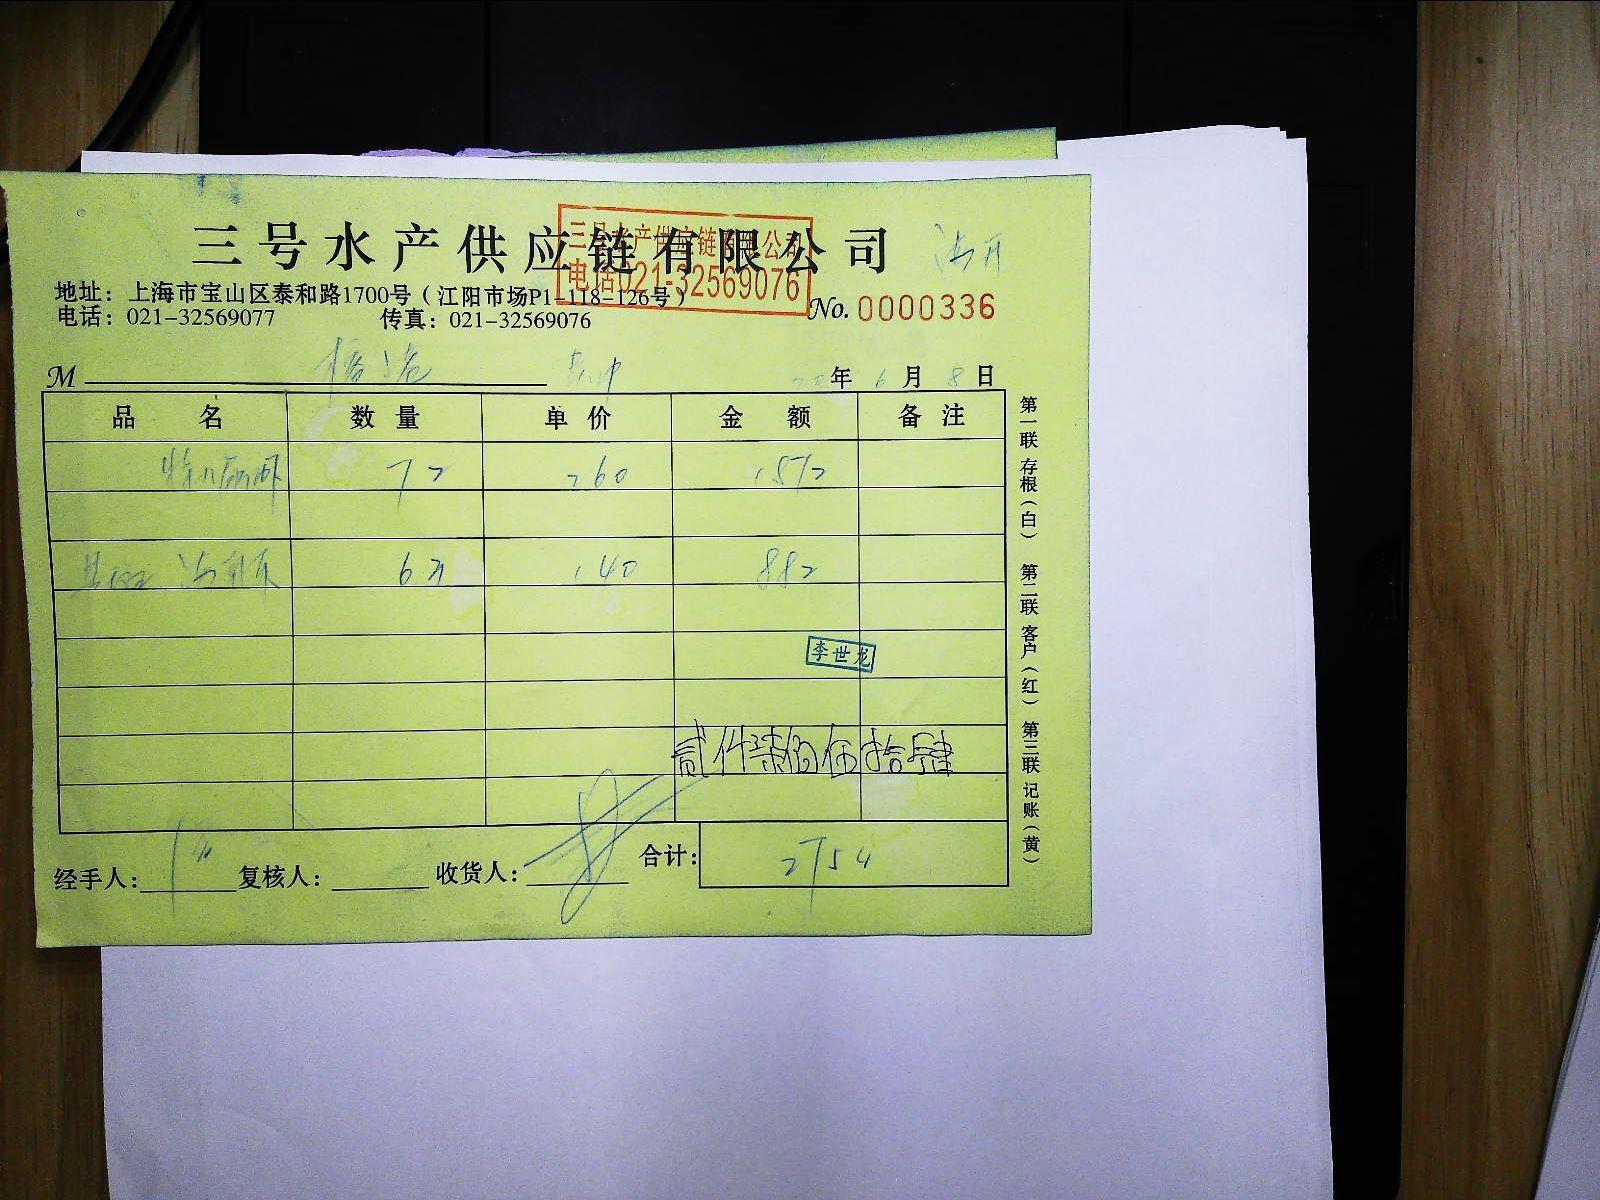 三号水产供应链有限公司
三号水产供应链有限公司
电话021-32569076
地址：上海市宝山区泰和路1700号（江阳市场P1-118-126号）
No. 0000336
电话：021-32569077 传真：021-32569076
M 年 6 月 8 日
品名 数量 单价 金额 备注
72 260
140 882
李世龙
贰仟柒佰伍拾肆
经手人： 复核人： 收货人： 合计： 2754
第一联 存根（白） 第二联 客户（红） 第三联 记账（黄）